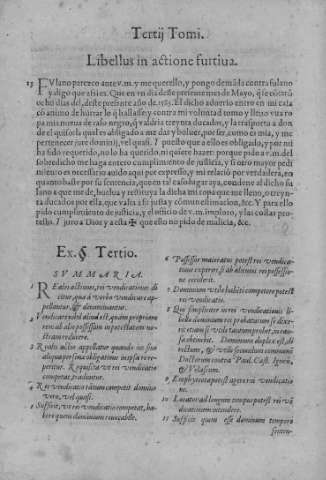 Tertij Tomi.
Libellus in actione furtiua.
13 FVlano parezco ante v. m. y me querello, y pongo demãda contra fulano
y digo que a si es. Que en vn dia deste presente mes de Mayo, q̃ se contarõ
ocho dias del, deste presente año de 1585. El dicho
animo de hurtar lo q̃ hallasse, y contra mi voluntad tomo y lleno vna ro
pa mia nueua de raso negro, q̃ valdria treynta ducados, y la traspuso a don
de el quiso: la qual es obligado a me dar y boluer, por ser, como es mia, y me
pertenecer iure dominij, vel quasi. Y puesto que a ello es obligado, y por mi
ha sido requerido, no lo ha querido, ni quiere hazer: porque pido a v. m. del
sobredicho me haga entero cumplimiento de justicia, y si otro mayor pedi
miento es necessario auido aqui por expresso, y mi relacio por verdadera, en
quanto baste por su sentencia, que en tal caso lugar aya, condene al dicho fu
lano a que me de, buelua y restituya la dicha mi ropa que me lleuo, o treyn
ta ducados por ella, que valia a su justa y comũ estimacion, &c. Y para ello
pido cumplimiento de justicia, y el officio de v. m. imploro, y las costas pro
testo. Y juro a Dios y a esta ✠ que esto no pido de malicia, &c.
Ex. §. Tertio.
SVMMARIA.
REales actiones, rei vendicationes di
cuntur, quæ à verbo vendicare cap-
pellantur, & denominantur.
2 Vendicare nihil aliud est, quàm propriam
rem ab alio possessam in potestatem no-
stram reducere.
3 Realis actio appellatur quando non sine
aliqua persona obligatione in ipsa rere-
peritur. Requisita vt rei vendicatio
competat, traduntur.
4 Rei vendicatio tantum competit domino
vero, vel quasi.
5 Sufficit, vt rei vendicatio competat, ha-
bere quem dominium reuocabile.
6 Possessor maioratus potest rei vendicatio
ne experiri, si ab alio rei possessio
no cecideris.
7 Dominium vtile habẽti competere potest
rei vendicatio.
8 Qui simpliciter in rei vendicationis li-
bello dominium rei probatum se dixe-
rit etiam si vtile tantum probet, re cau-
sa obtinebit. Dominium duplex est, di-
rectum, & vtile secundum communẽ
Doctorum contra Paul. Cast. Ignẽũ,
& Velascum.
9 Emphyteota potest agere rei vendicatio
ne.
10 Locator ad longum tempus potest rei vẽ
dicationem intendere.
11 Sufficit quem esse dominum tempore
senten-